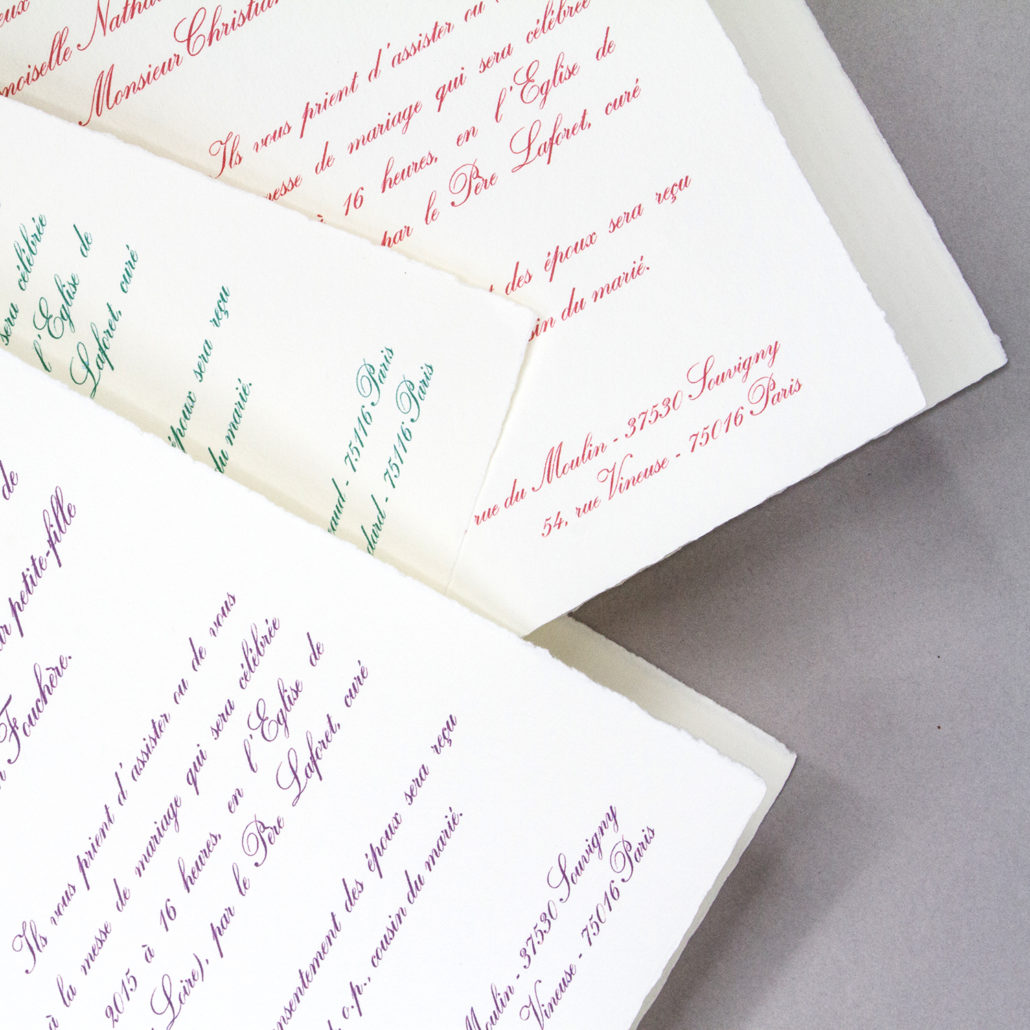 Monsieur Christian
Ils vous prient d'assister ou
messe de mariage qui sera célébrée
à 16 heures, en l'Eglise de
par le Père Laforet, curé
des époux sera reçu
du marié.
rue du Moulin - 37530 Souvigny
54, rue Vineuse - 75016 Paris
sera célébrée
l'Eglise de
Laforet, curé
époux sera reçu
du marié.
- 75116 Paris
- 75116 Paris
de
petite-fille
Fouchère.
Ils vous prient d'assister ou de vous
à la messe de mariage qui sera célébrée
2015 à 16 heures, en l'Eglise de
Loire), par le Père Laforet, curé
des époux sera reçu
o.p., cousin du marié.
Moulin - 37530 Souvigny
Vineuse - 75016 Paris